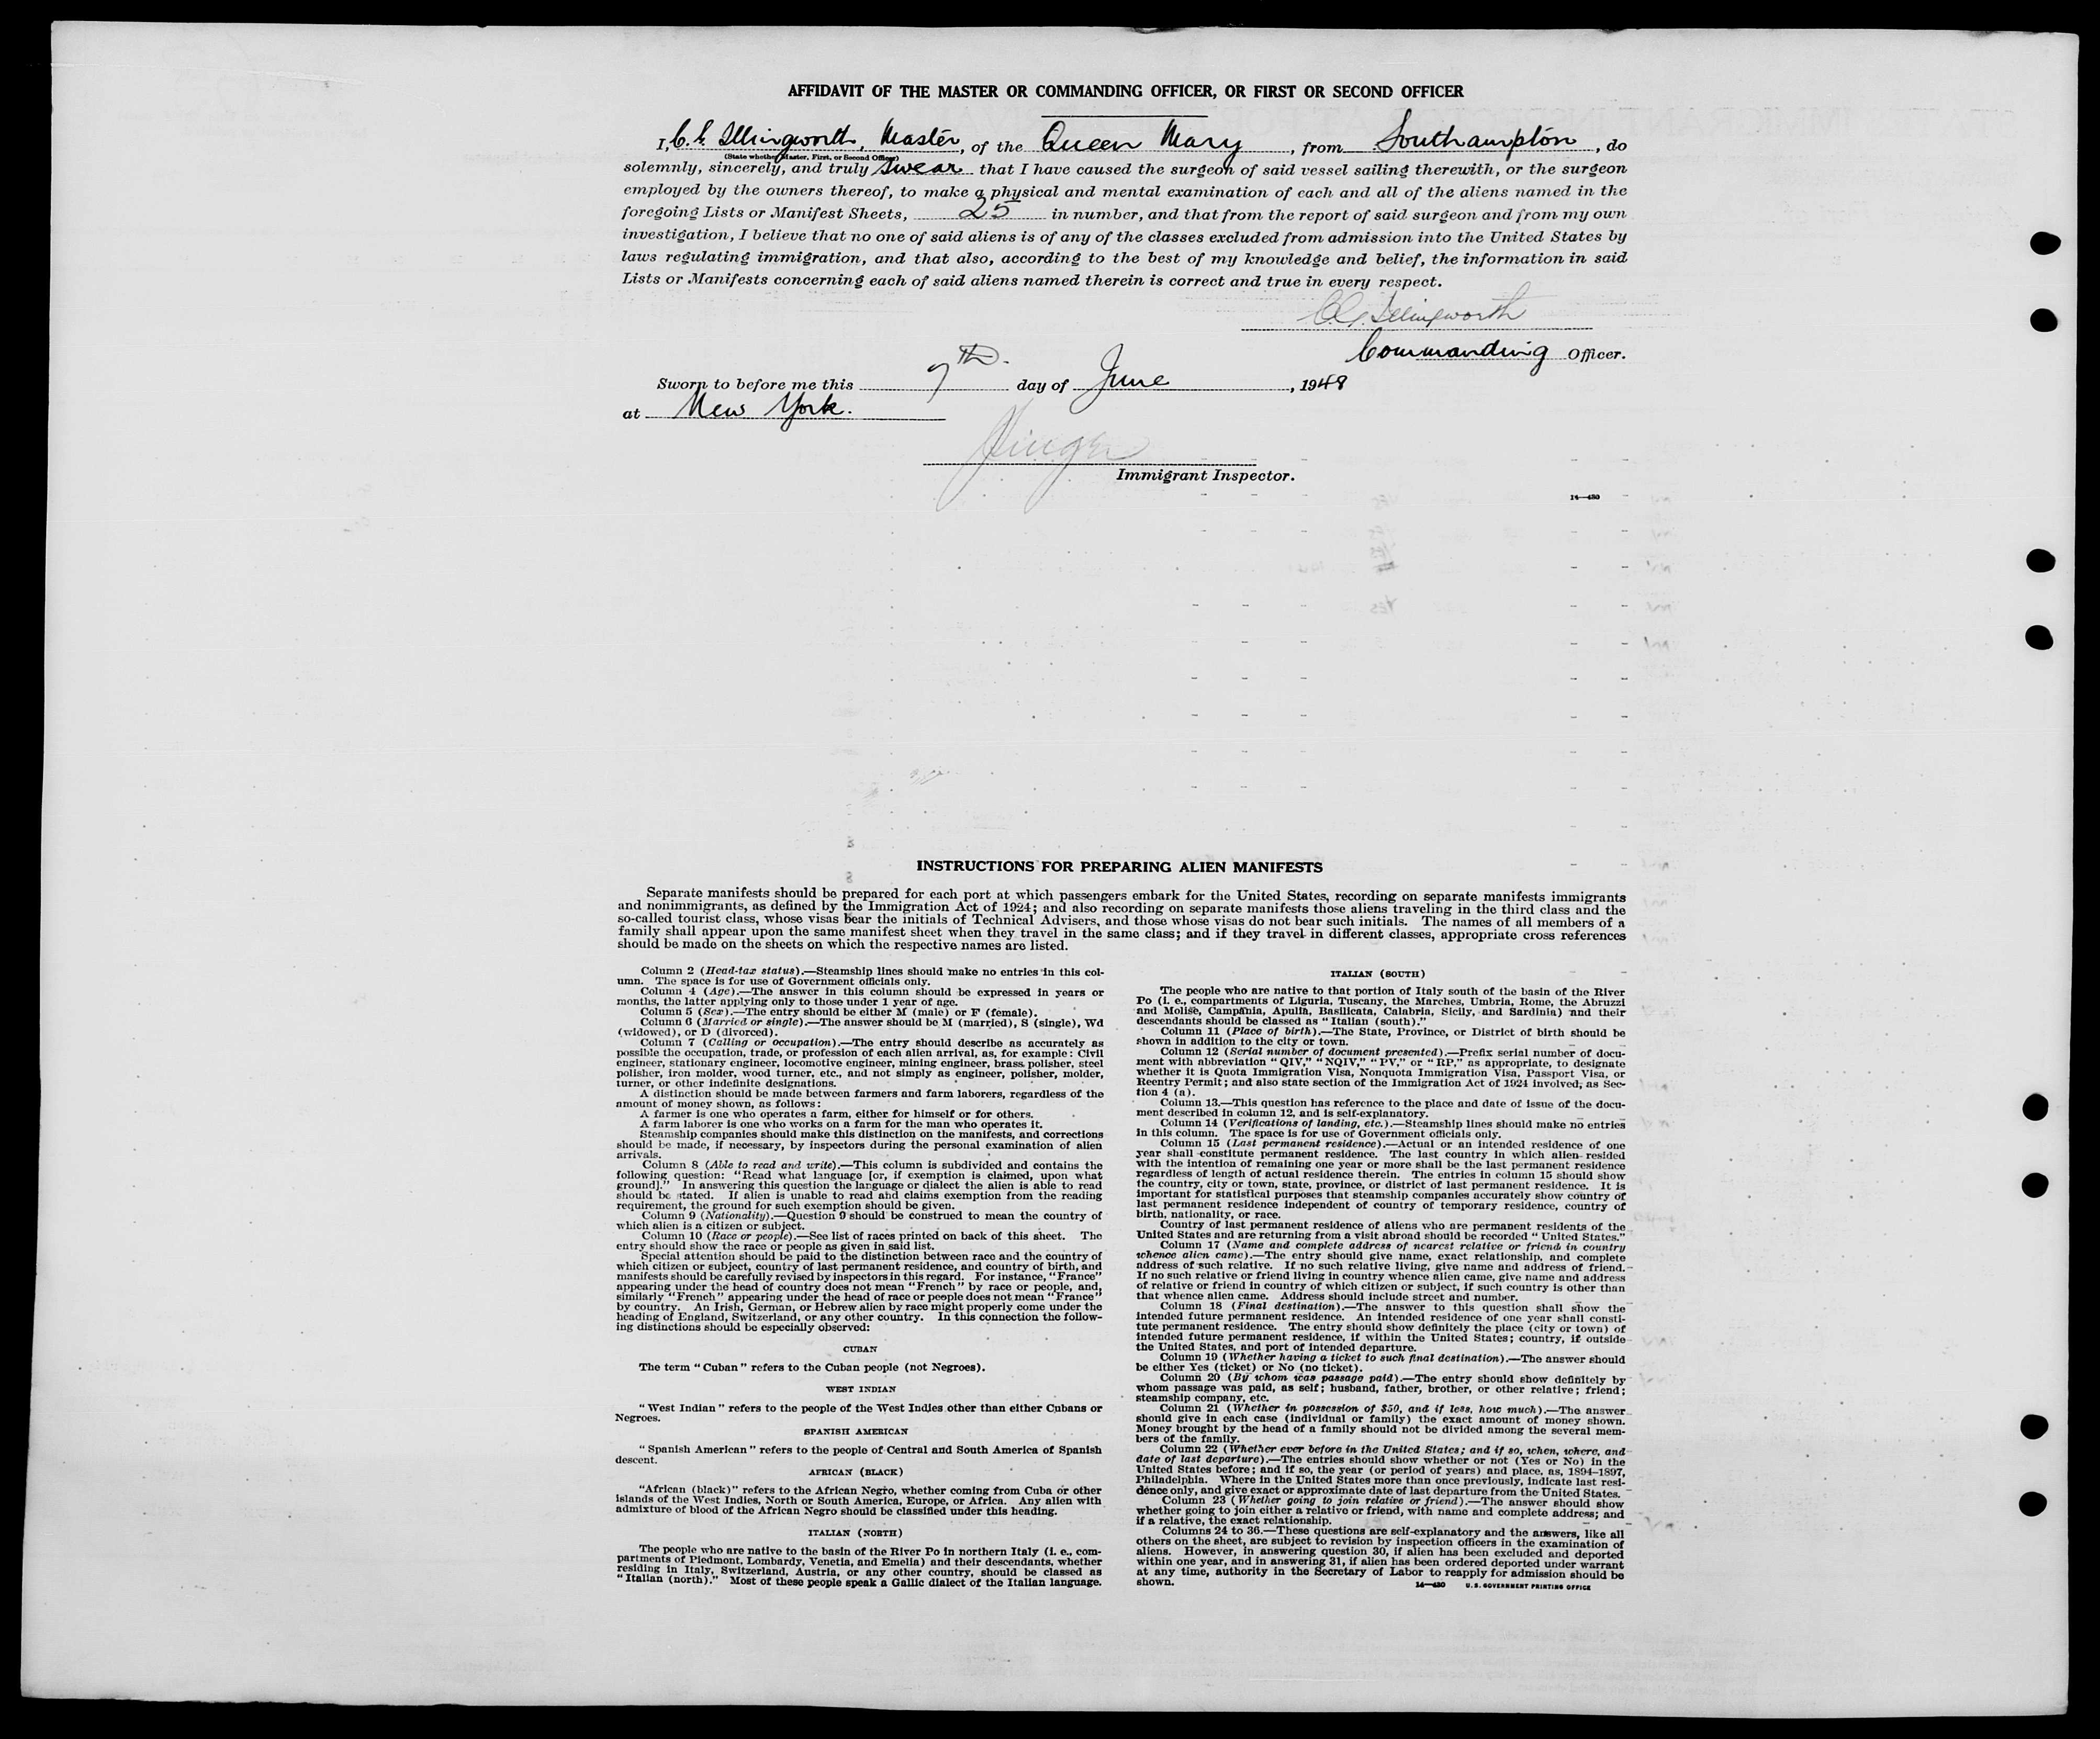 AFFIDAVIT OF THE MASTER OR COMMANDING OFFICER, OR FIRST OR SECOND OFFICER
I, C. G. Illingworth, Master, of the Queen Mary, from Southampton, do
(State whether Master, First, or Second Officer)
solemnly, sincerely, and truly swear that I have caused the surgeon of said vessel sailing therewith, or the surgeon
employed by the owners thereof, to make a physical and mental examination of each and all of the aliens named in the
foregoing Lists or Manifest Sheets, 25 in number, and that from the report of said surgeon and from my own
investigation, I believe that no one of said aliens is of any of the classes excluded from admission into the United States by
laws regulating immigration, and that also, according to the best of my knowledge and belief, the information in said
Lists or Manifests concerning each of said aliens named therein is correct and true in every respect.
C.G. Illingworth
Commanding Officer.
Sworn to before me this 7th. day of June, 1948
at New York.
Immigrant Inspector.
14—430
INSTRUCTIONS FOR PREPARING ALIEN MANIFESTS
Separate manifests should be prepared for each port at which passengers embark for the United States, recording on separate manifests immigrants
and nonimmigrants, as defined by the Immigration Act of 1924; and also recording on separate manifests those aliens traveling in the third class and the
so-called tourist class, whose visas bear the initials of Technical Advisers, and those whose visas do not bear such initials. The names of all members of a
family shall appear upon the same manifest sheet when they travel in the same class; and if they travel in different classes, appropriate cross references
should be made on the sheets on which the respective names are listed.
Column 2 (Head-tax status).—Steamship lines should make no entries in this col-
umn. The space is for use of Government officials only.
Column 4 (Age).—The answer in this column should be expressed in years or
months, the latter applying only to those under 1 year of age.
Column 5 (Sex).—The entry should be either M (male) or F (female).
Column 6 (Married or single).—The answer should be M (married), S (single), Wd
(widowed), or D (divorced).
Column 7 (Calling or occupation).—The entry should describe as accurately as
possible the occupation, trade, or profession of each alien arrival, as, for example: Civil
engineer, stationary engineer, locomotive engineer, mining engineer, brass polisher, steel
polisher, iron molder, wood turner, etc., and not simply as engineer, polisher, molder,
turner, or other indefinite designations.
A distinction should be made between farmers and farm laborers, regardless of the
amount of money shown, as follows:
A farmer is one who operates a farm, either for himself or for others.
A farm laborer is one who works on a farm for the man who operates it.
Steamship companies should make this distinction on the manifests, and corrections
should be made, if necessary, by inspectors during the personal examination of alien
arrivals.
Column 8 (Able to read and write).—This column is subdivided and contains the
following question: "Read what language [or, if exemption is claimed, upon what
ground]." In answering this question the language or dialect the alien is able to read
should be stated. If alien is unable to read and claims exemption from the reading
requirement, the ground for such exemption should be given.
Column 9 (Nationality).—Question 9 should be construed to mean the country of
which alien is a citizen or subject.
Column 10 (Race or people).—See list of races printed on back of this sheet. The
entry should show the race or people as given in said list.
Special attention should be paid to the distinction between race and the country of
which citizen or subject, country of last permanent residence, and country of birth, and
manifests should be carefully revised by inspectors in this regard. For instance, "France"
appearing under the head of country does not mean "French" by race or people, and,
similarly "French" appearing under the head of race or people does not mean "France"
by country. An Irish, German, or Hebrew alien by race might properly come under the
heading of England, Switzerland, or any other country. In this connection the follow-
ing distinctions should be especially observed:
CUBAN
The term "Cuban" refers to the Cuban people (not Negroes).
WEST INDIAN
"West Indian" refers to the people of the West Indies other than either Cubans or
Negroes.
SPANISH AMERICAN
"Spanish American" refers to the people of Central and South America of Spanish
descent.
AFRICAN (BLACK)
"African (black)" refers to the African Negro, whether coming from Cuba or other
islands of the West Indies, North or South America, Europe, or Africa. Any alien with
admixture of blood of the African Negro should be classified under this heading.
ITALIAN (NORTH)
The people who are native to the basin of the River Po in northern Italy (i. e., com-
partments of Piedmont, Lombardy, Venetia, and Emelia) and their descendants, whether
residing in Italy, Switzerland, Austria, or any other country, should be classed as
"Italian (north)." Most of these people speak a Gallic dialect of the Italian language.
ITALIAN (SOUTH)
The people who are native to that portion of Italy south of the basin of the River
Po (i. e., compartments of Liguria, Tuscany, the Marches, Umbria, Rome, the Abruzzi
and Molise, Campania, Apulia, Basilicata, Calabria, Sicily, and Sardinia) and their
descendants should be classed as "Italian (south)."
Column 11 (Place of birth).—The State, Province, or District of birth should be
shown in addition to the city or town.
Column 12 (Serial number of document presented).—Prefix serial number of docu-
ment with abbreviation "QIV," "NQIV," "PV," or "RP," as appropriate, to designate
whether it is Quota Immigration Visa, Nonquota Immigration Visa, Passport Visa, or
Reentry Permit; and also state section of the Immigration Act of 1924 involved, as Sec-
tion 4 (a).
Column 13.—This question has reference to the place and date of issue of the docu-
ment described in column 12, and is self-explanatory.
Column 14 (Verifications of landing, etc.).—Steamship lines should make no entries
in this column. The space is for use of Government officials only.
Column 15 (Last permanent residence).—Actual or an intended residence of one
year shall constitute permanent residence. The last country in which alien resided
with the intention of remaining one year or more shall be the last permanent residence
regardless of length of actual residence therein. The entries in column 15 should show
the country, city or town, state, province, or district of last permanent residence. It is
important for statistical purposes that steamship companies accurately show country of
last permanent residence independent of country of temporary residence, country of
birth, nationality, or race.
Country of last permanent residence of aliens who are permanent residents of the
United States and are returning from a visit abroad should be recorded "United States."
Column 17 (Name and complete address of nearest relative or friend in country
whence alien came).—The entry should give name, exact relationship, and complete
address of such relative. If no such relative living, give name and address of friend.
If no such relative or friend living in country whence alien came, give name and address
of relative or friend in country of which citizen or subject, if such country is other than
that whence alien came. Address should include street and number.
Column 18 (Final destination).—The answer to this question shall show the
intended future permanent residence. An intended residence of one year shall consti-
tute permanent residence. The entry should show definitely the place (city or town) of
intended future permanent residence, if within the United States; country, if outside
the United States, and port of intended departure.
Column 19 (Whether having a ticket to such final destination).—The answer should
be either Yes (ticket) or No (no ticket).
Column 20 (By whom was passage paid).—The entry should show definitely by
whom passage was paid, as self; husband, father, brother, or other relative; friend;
steamship company, etc.
Column 21 (Whether in possession of $50, and if less, how much).—The answer
should give in each case (individual or family) the exact amount of money shown.
Money brought by the head of a family should not be divided among the several mem-
bers of the family.
Column 22 (Whether ever before in the United States; and if so, when, where, and
date of last departure).—The entries should show whether or not (Yes or No) in the
United States before; and if so, the year (or period of years) and place, as, 1894–1897,
Philadelphia. Where in the United States more than once previously, indicate last resi-
dence only, and give exact or approximate date of last departure from the United States.
Column 23 (Whether going to join relative or friend).—The answer should show
whether going to join either a relative or friend, with name and complete address; and
if a relative, the exact relationship.
Columns 24 to 36.—These questions are self-explanatory and the answers, like all
others on the sheet, are subject to revision by inspection officers in the examination of
aliens. However, in answering question 30, if alien has been excluded and deported
within one year, and in answering 31, if alien has been ordered deported under warrant
at any time, authority in the Secretary of Labor to reapply for admission should be
shown.
14—430 U. S. GOVERNMENT PRINTING OFFICE